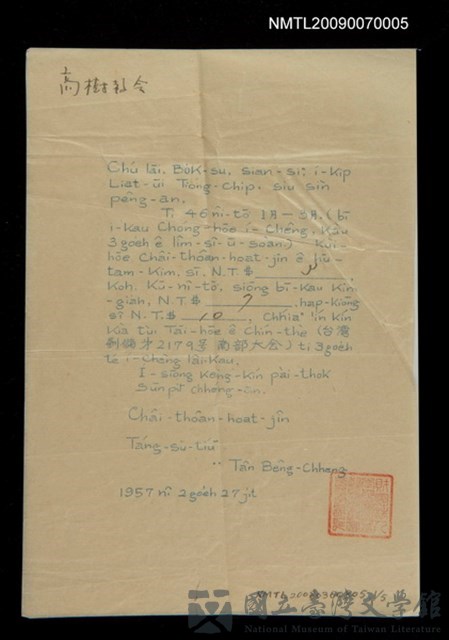 NMTL20090070005
高樹教会
Chú lāi, Bo̍k-su, sian-siⁿ í-ki̍p
Lia̍t-ūi Tông-chip, siū sìn
pêng-an,
Tī 46 nî-tō͘ 1月－12月, (bī
í-kàu Chong-hōe í-chêng, kàu
3 goe̍h ê lîm-sî ū-soàn) kùi-
hōe Châi-thoân-hoat-jîn ê hū-
tam-kim, sī N.T.$
Koh, Kū-nî-tō͘, siōng bī-kàu Kim-
gia̍h, N.T.$ 7, ha̍p-kiōng
sī N.T.$ 10, Chhiáⁿ lín kín
kià tùi Tāi-hōe ê Chín-thù (台灣
劃儲才2179号 南部大会) tī 3 goe̍h
té í-chêng lâi-kàu,
Í-siōng kéng-kín pài-thok
Sūn-pit chhéng-an.
Châi-thoân-hoat-jîn
Táng-sū-tiúⁿ
Tân Bêng-Chheng
1957 nî 2 goe̍h 27 ji̍t
國立臺灣文學館
National Museum of Taiwan Literature